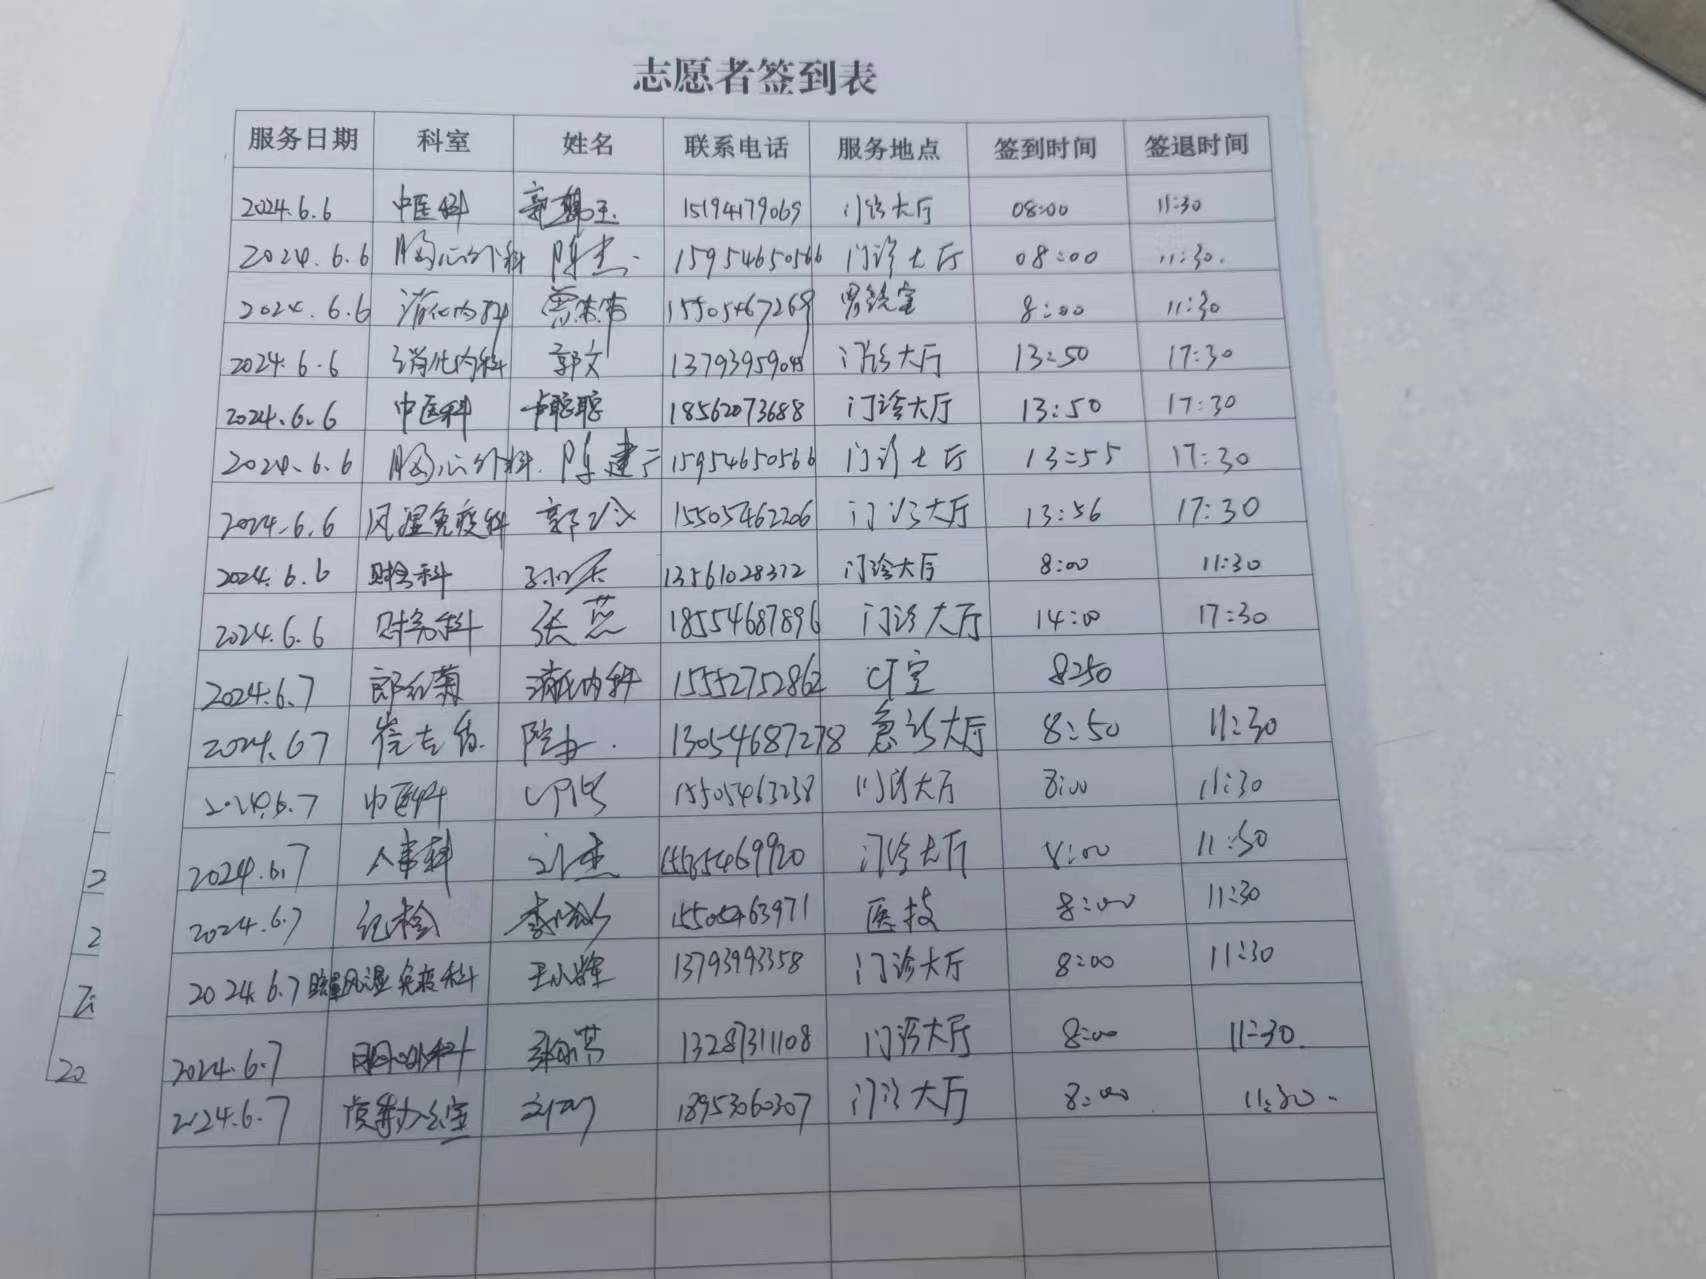 志愿者签到表
服务日期 科室 姓名 联系电话 服务地点 签到时间 签退时间
2024.6.6 中医科 15194179069 门诊大厅 08:00 11:30
2024.6.6 胸心外科 陈杰 15954650566 门诊大厅 08:00 11:30.
2024.6.6 消化内科 15505467269 胃镜室 8:00 11:30
2024.6.6 消化内科 郭文 13793959045 门诊大厅 13:50 17:30
2024.6.6 中医科 卢聪聪 18562073688 门诊大厅 13:50 17:30
2024.6.6 胸心外科. 陈建 15954650566 门诊大厅 13:55 17:30
2024.6.6 风湿免疫科 郭 15505462206 门诊大厅 13:56 17:30
2024.6.6 财务科 13561028312 门诊大厅 8:00 11:30
2024.6.6 财务科 张蕊 18554687896 门诊大厅 14:00 17:30
2024.6.7 郎红菊 消化内科 15552752862 CT室 8:50
2024.6.7 崔 院办. 13054687278 急诊大厅 8:50 11:30
2024.6.7 中医科 15505463238 门诊大厅 8:00 11:30
2024.6.7 人事科 刘杰 门诊大厅 8:00 11:30
2024.6.7 纪检 李 15505463971 医技 8:00 11:30
2024.6.7 风湿免疫科 王小辉 13793993358 门诊大厅 8:00 11:30
2024.6.7 外科 13287311108 门诊大厅 8:00 11:30.
2024.6.7 党委办公室 18953060307 门诊大厅 8:00 11:30.
2
2
20